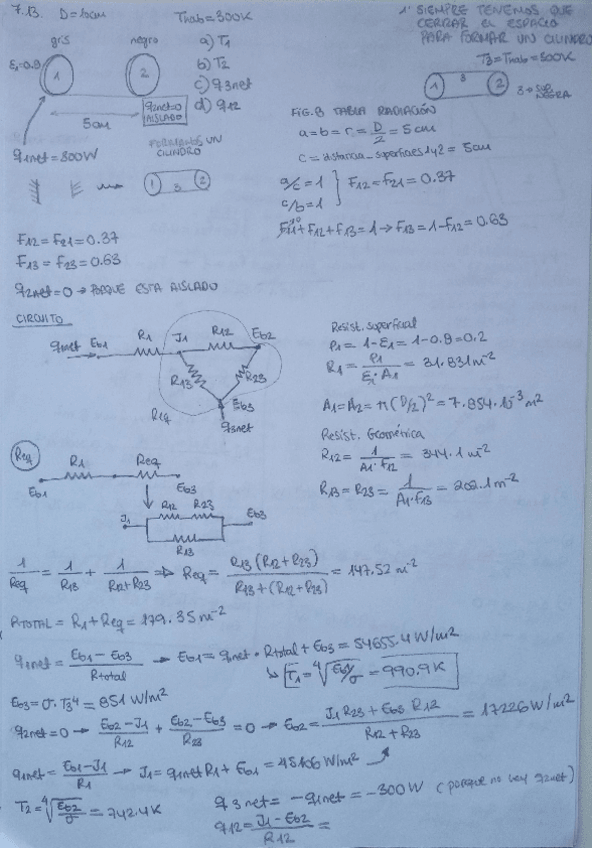 7.13. D=10cm
Thab=300K
gris
negro
ε1=0.8
1
2
a) T1
b) T2
c) q3net
d) q12
5cm
q2net=0
AISLADO
q1net=300W
FORMAMOS UN
CILINDRO
1 3 2
1º SIEMPRE TENEMOS QUE
CERRAR EL ESPACIO
PARA FORMAR UN CILINDRO
T3=Thab=300K
1 3 2
3→ SUP.
NEGRA
FIG. 8 TABLA RADIACIÓN
a=b=r=D/2=5cm
c=distancia_superficies 1y2=5cm
a/c=1
c/b=1
} F12=F21=0.37
F11+F12+F13=1→F13=1-F12=0.63
F12=F21=0.37
F13=F23=0.63
q2net=0→PORQUE ESTA AISLADO
CIRCUITO
q1net Eb1 R1 J1 R12 Eb2
R13 R23
Eb3
Req
q3net
Resist. superficial
ρ1=1-ε1=1-0.8=0.2
R1=ρ1/(ε1·A1)=31.831m⁻²
A1=A2=π(D/2)²=7.854·10⁻³m²
Resist. Geométrica
R12=1/(A1·F12)=344.1m⁻²
R13=R23=1/(A1·F13)=202.1m⁻²
Req
R1 Req
Eb1 Eb3
J1 R12 R23 Eb3
R13
1/Req=1/R13+1/(R12+R23)⇒Req=R13(R12+R23)/(R13+(R12+R23))=147.52m⁻²
RTOTAL=R1+Req=179.35m⁻²
q1net=(Eb1-Eb3)/Rtotal→Eb1=q1net·Rtotal+Eb3=54655.4W/m²
↳T1=⁴√(Eb1/σ)=990.9K
Eb3=σ·T3⁴=851W/m²
q2net=0→(Eb2-J1)/R12+(Eb2-Eb3)/R23=0→Eb2=(J1R23+Eb3R12)/(R12+R23)=17226W/m²
q1net=(Eb1-J1)/R1→J1=q1netR1+Eb1=45106W/m²
T2=⁴√(Eb2/σ)=742.4K
q3net=-q1net=-300W (porque no hay q2net)
q12=(J1-Eb2)/R12=